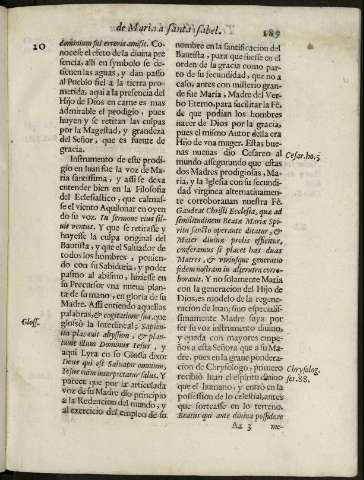 de Maria a santa Isabel.
189
20
dominium sui erroris amisit. Co-
nocese el efeto de la diuina pre
sencia, alli en symbolo se de-
tienen las aguas, y dan passo
al Pueblo fiel a la tierra pro-
metida, aqui a la presencia del
Hijo de Dios en carne es mas
admirable el prodigio, pues
huyen y se retiran las culpas
por la Magestad, y grandeza
del Señor, que es fuente de
gracia.
Instrumento de este prodi-
gio en Iuan fue la voz de Ma-
ria santissima, y assi se deva
entender bien en la Filosofia
del Eclesiastico, que calmas-
se el viento Aquilonar en oyen
do su voz. In sermone eius si-
luit ventus. Y que se retirasse y
huyesse la culpa original del
Bautista, y que el Saluador de
todos los hombres, ponien-
do con su Sabiduria, y poder
pasmo al abismo, luziesse en
su Precursor vna nueva plan-
ta de su mano, en gloria de su
Madre. Assi entiendo aquellas
palabras, & cogitatione sua, que
Gloss.
glosò la Interlineal; Sapien-
tia placauit abyssum, & plan-
tauit illum Dominus Iesus, y
aqui Lyra en su Glossa dixo:
Deus qui est Saluator omnium,
Iesus enim interpretatur salus. Y
parece que por la articulada
voz de su Madre dio principio
a la Redencion del mundo, y
al exercicio del empleo de su
nombre en la santificacion del
Bautista, y para que fuesse en el
orden de la gracia como par-
to de su fecundidad, que no a
caso, antes con misterio gran-
de fue Maria, Madre del Ver-
bo Eterno, para facilitar la Fè,
de que podian los hombres
nacer de Dios por la gracia,
pues el mismo Autor della era
Hijo de vna muger. Estas bue-
nas nueuas dio Cesareo al
Cesar. ho. 3
mundo assegurando que estas
dos Madres prodigiosas, Ma-
ria, y la Iglesia con su fecundi-
dad virginea alternatiuamen-
te corroborauan nuestra Fè.
Gaudeat Christi Ecclesia, que ad
similitudinem Beatæ Mariæ Spi-
ritu sancto operante ditatur, &
Mater diuinæ prolis efficitur,
conferamus si placet has duas
Matres, & vtriusque generatio
fidem nostram in alterutra corro-
borat. Y no solamente Maria
con la generacion del Hijo de
Dios, es modelo de la regene-
racion de Iuan, sino especial-
issimamente Madre suya por
ser su voz instrumento diuino,
y queda con mayores empe-
ños a esta Señora que a su Ma-
dre, pues en la graue pondera-
cion de Chrysologo, primero
Chrysolog.
ser. 88.
recibiò Iuan el espiritu diuino
que el humano, y entrò en la
possession de lo celestial, antes
que sorteasse en lo terreno.
Beatus qui ante diuina possidere
Aa 3
me-